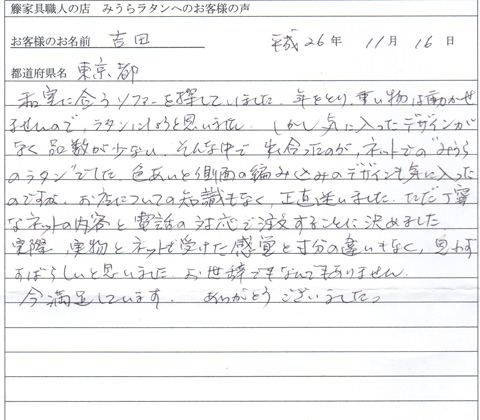 籐家具職人の店 みうらラタンへのお客様の声
お客様のお名前 吉田 平成26年 11月 16日
都道府県名 東京都
和室に合うソファーを探していました。年をとり、重い物は動かせ
ませんので、ラタンにしようと思いました。しかし気に入ったデザインが
なく品数が少ない。そんな中で 出合ったのが、ネットでの"みうら
のラタン"でした。色あいと側面の編み込みのデザインも気に入った
のですが、お店についての知識もなく、正直迷いました。ただ丁寧
なネットの内容と電話の対応で注文することに決めました
実際、実物とネットで受けた感覚と寸分の違いもなく、思わず
すばらしいと思いました。お世辞でもなんでもありません。
今満足しています。 ありがとうございました。